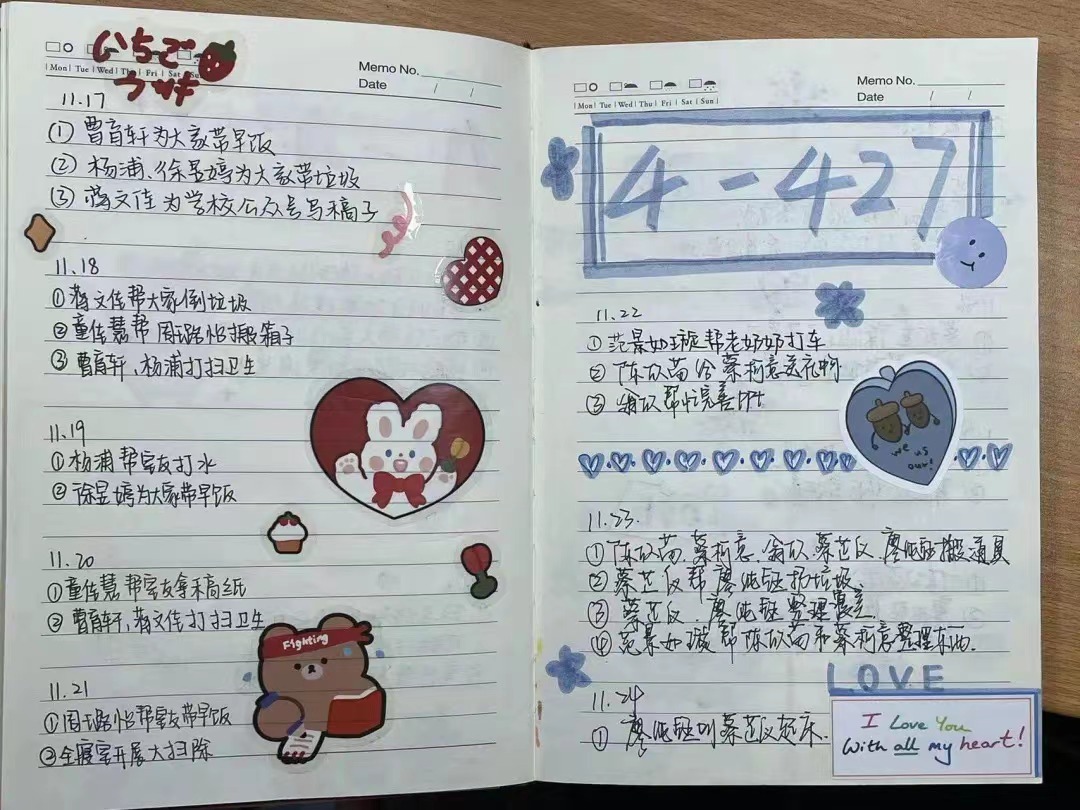 いちご
Mon Tue Wed Thu Fri Sat Sun
Memo No.
Date / /
11.17
① 曹育轩为大家带早饭
② 杨浦、徐昱嫣为大家带垃圾
③ 蒋文佳为学校公众号写稿子
11.18
①蒋文佳帮大家倒垃圾
②童佳慧帮周璐怡搬箱子
③曹育轩,杨浦打扫卫生
11.19
①杨浦帮室友打水
②徐昱嫣为大家带早饭
11.20
①童佳慧帮室友拿稿纸
②曹育轩,蒋文佳打扫卫生
Fighting
11.21
①周璐怡帮室友带早饭
②全寝室开展大扫除
Mon Tue Wed Thu Fri Sat Sun
Memo No.
Date / /
4-427
11.22
①范景如璇帮老奶奶打车
②陈 苗给蔡柯意送礼物
③ 帮忙完善PPT
we us
our!
11.23.
①陈 苗、蔡柯意、 蔡芷仪、廖 搬道具
②蔡芷仪帮廖 扔垃圾
③蔡芷仪、廖 整理寝室
④范景如璇帮陈 苗和蔡柯意整理东西.
LOVE
11.24
① 廖 叫蔡芷仪起床.
I Love You
With all my heart!